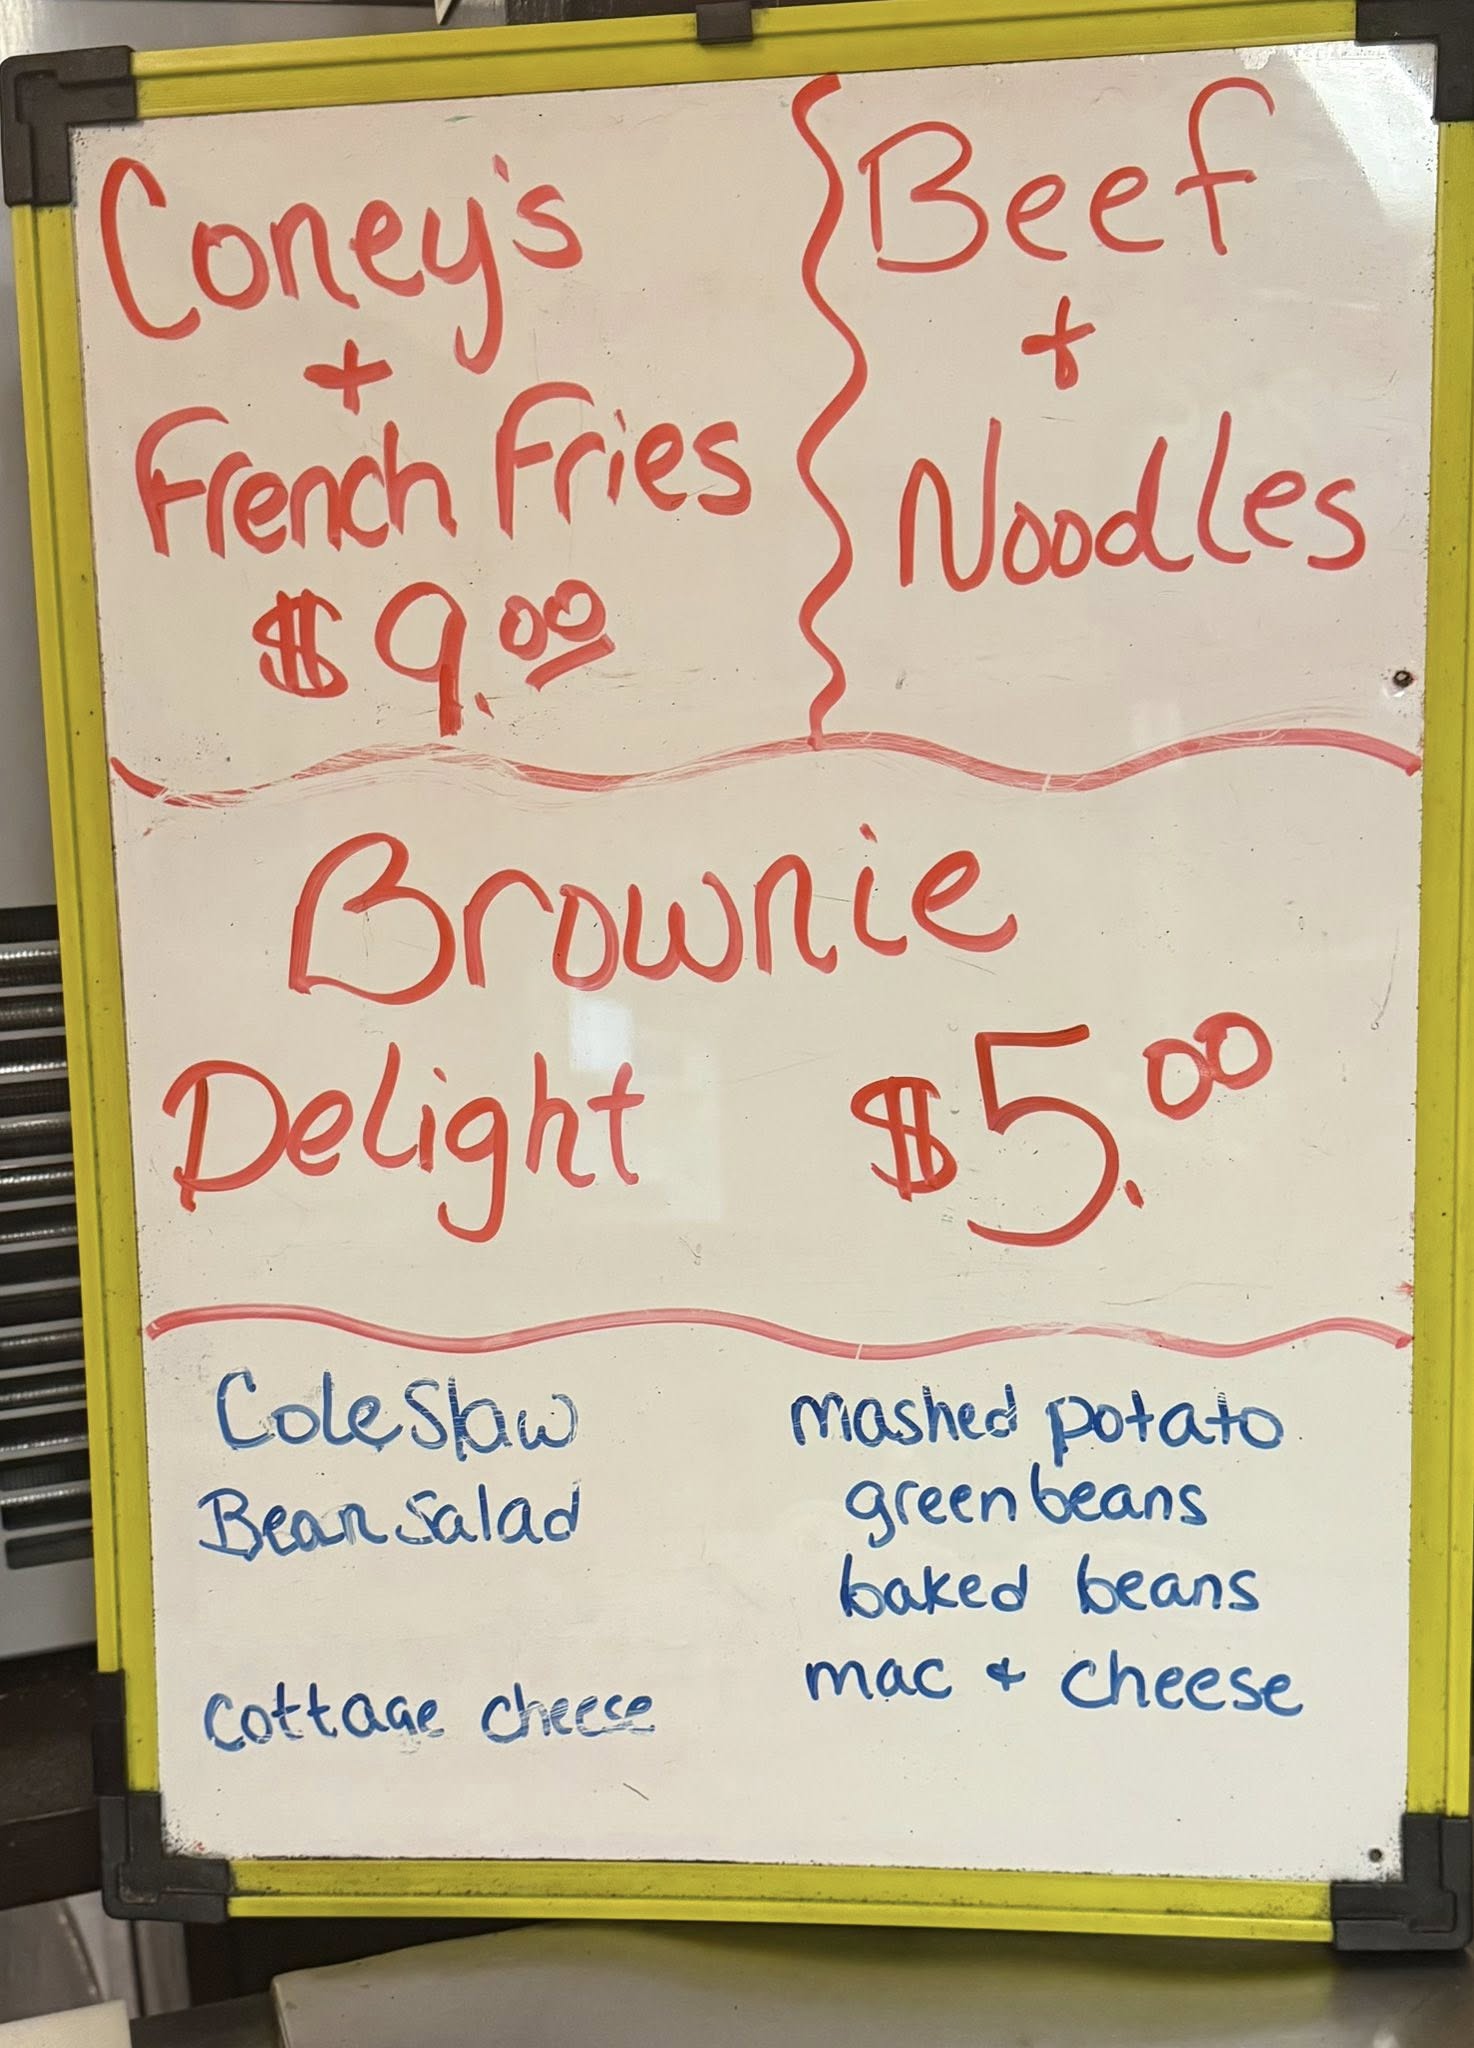 Coney's
+
French Fries
$9.00
Beef
+
Noodles
Brownie
Delight $5.00
Cole Slaw
Bean Salad
cottage cheese
mashed potato
green beans
baked beans
mac + cheese